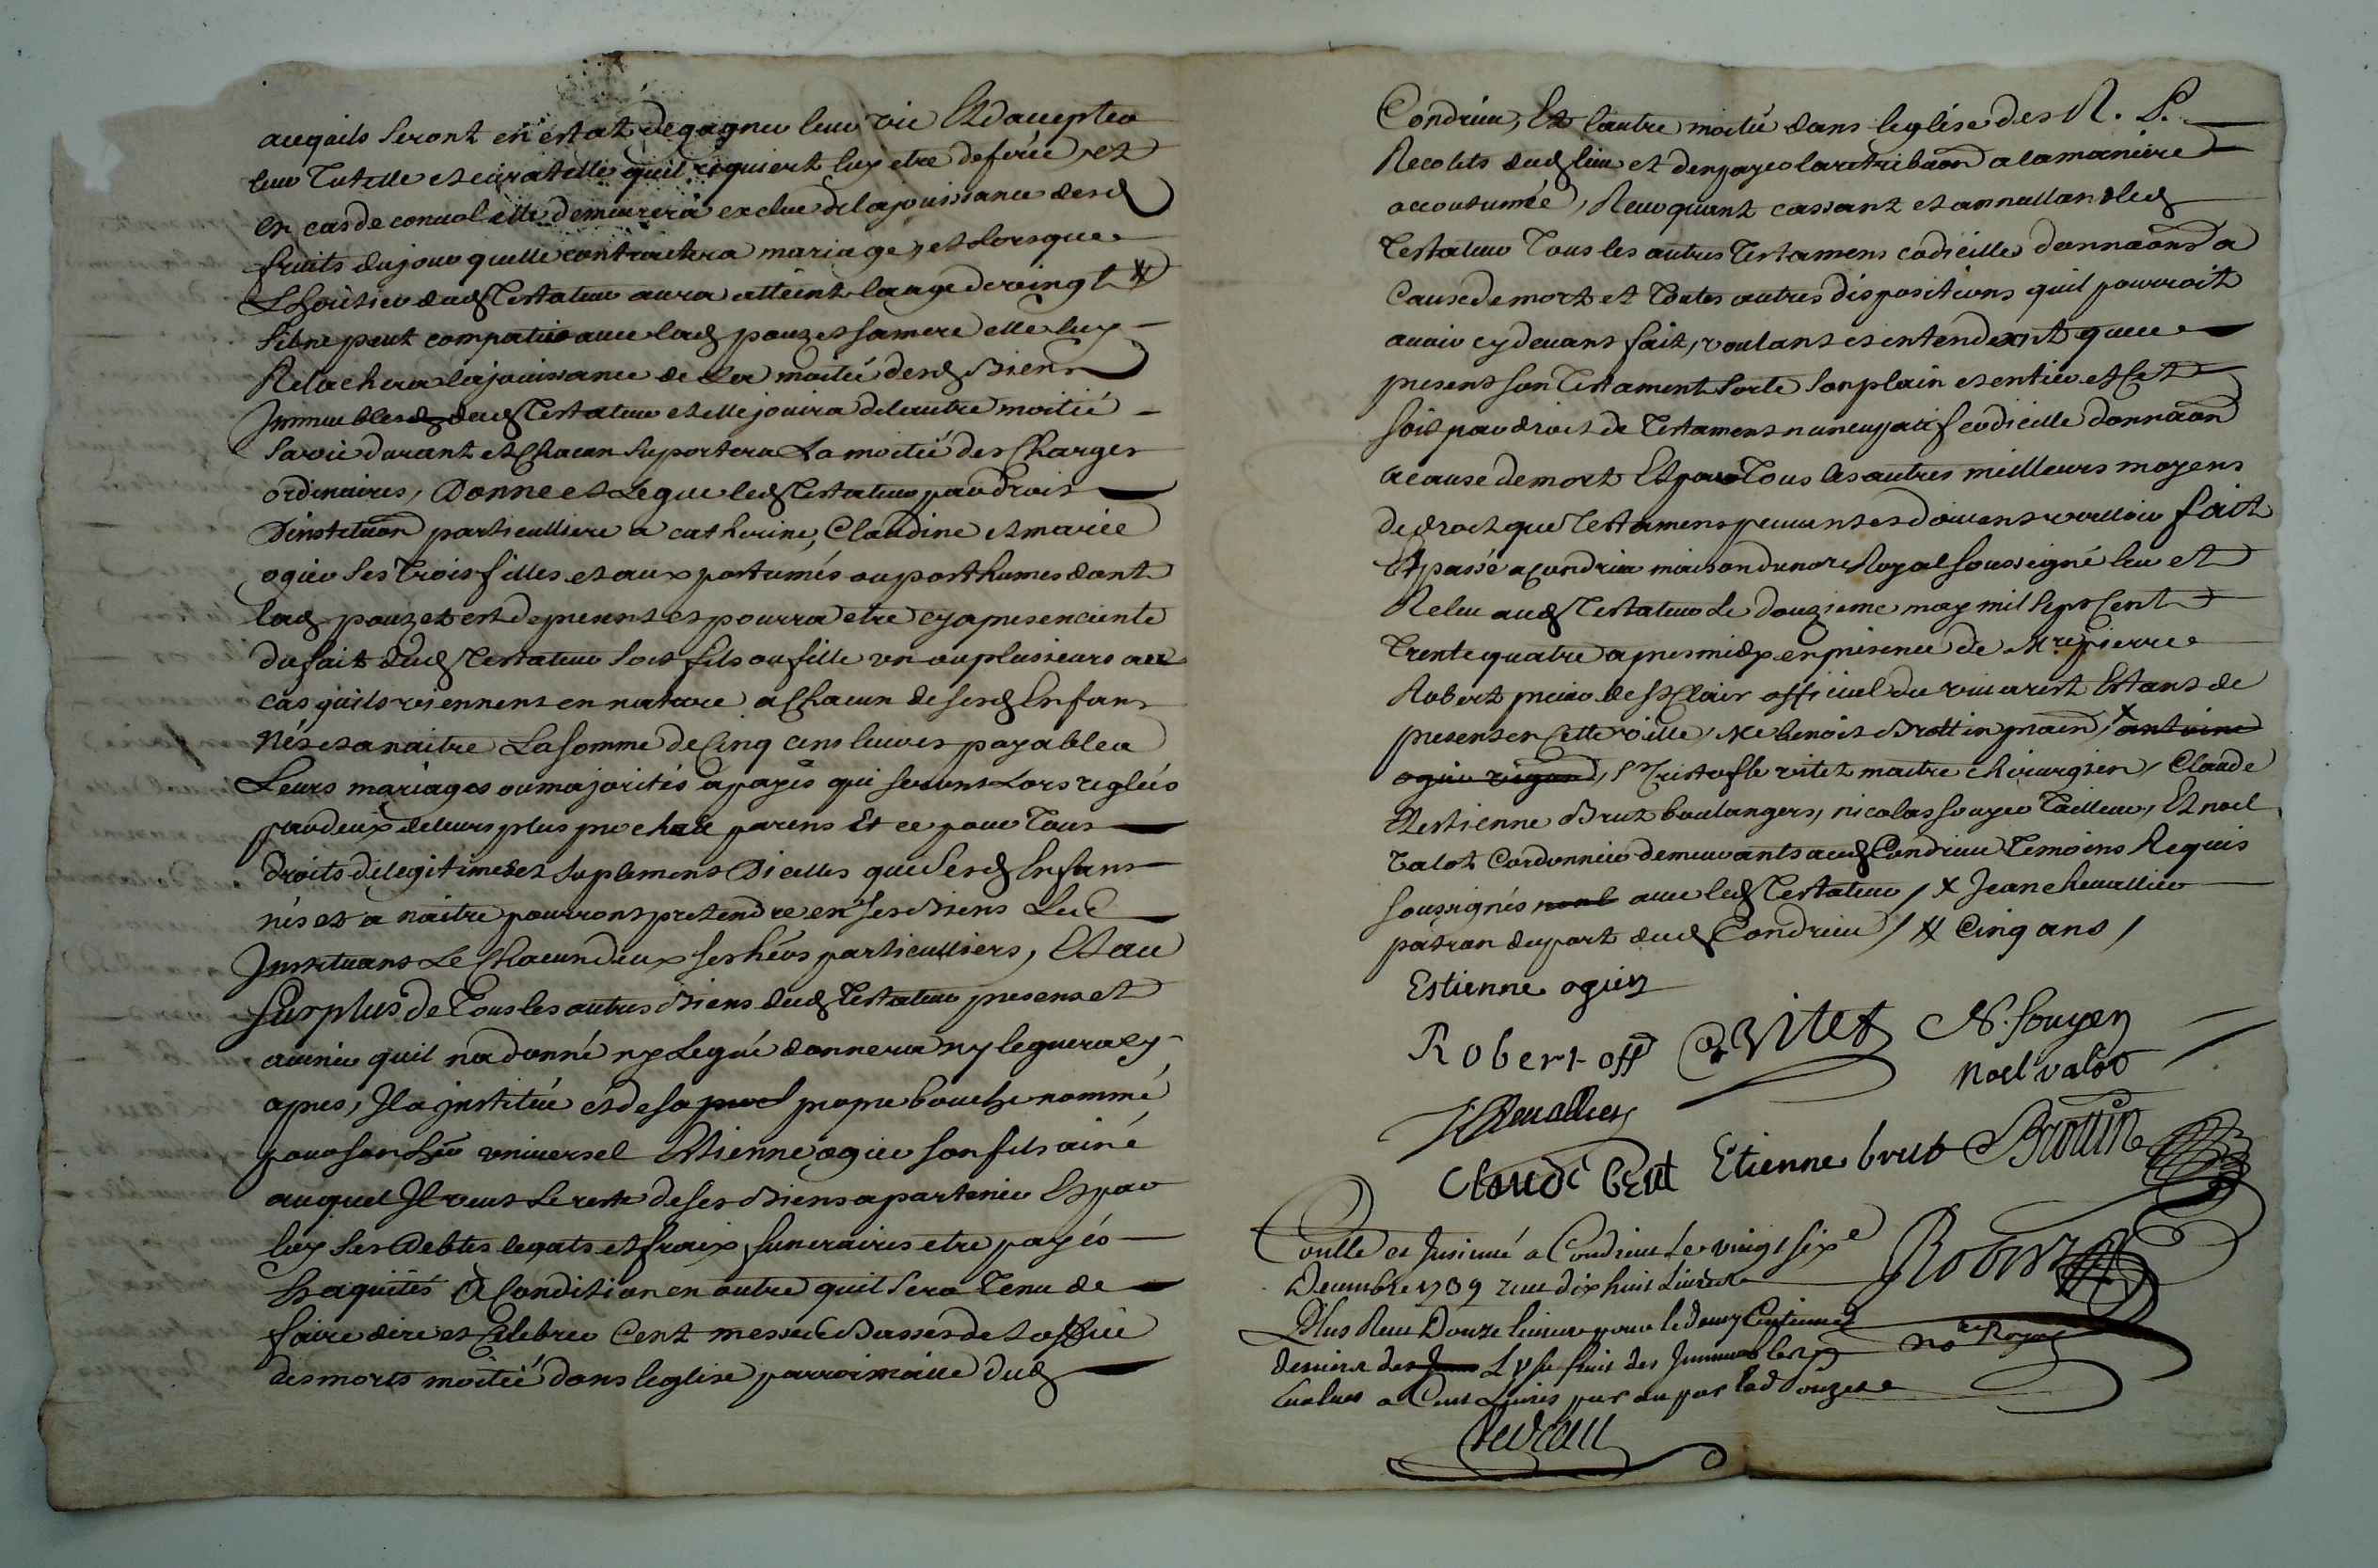 ce qu'ils seront en estat de gagner leur vie Et d'accepter
leur Tutelle et curatelle quil requiert luy etre deferée, et
en cas de conuol elle demeurera exclue de la jouissance desd
fruits du jour quelle contractera mariage, et Lorsque
Lheritier dud Testateur aura atteint laage de vingt #
sil ne peut compatir auec lad pouzet sa mere elle luy
Relachera la jouissance de La moitié desd Biens
Immeubles dud Testateur et elle jouira de l'autre moitié
sa vie durant et Chacun suportera La moitié des Charges
ordinaires, Donne et Legue led Testateur par droit
D'instituon particulliere a catherine, Claudine et marie
ogier ses Trois filles et aux postumés ou posthumes dont
lad pouzet est de present et pourra etre cy apres enceinte
du fait dud Testateur soit fils ou fille un ou plusieurs au
cas quils viennent en nature a Chacun de sesd Enfans
Nés et a naitre La somme de Cinq cens liures payable a
Leurs mariages ou majorités a payes qui seront Lors reglés
par deux de leurs plus proches parens Et ce pour Tous
droits de legitimes et suplement Dicelles que sesd Enfans
nés et a naitre pourront pretendre en ses Biens Les
Instituant Le Chacun deux ses héers particulliers, Et au
surplus de Tous les autres Biens dud Testateur presens et
auenir quil na donné ny Legué donnera ny leguera cy
apres, Il a institué et de sa propre bouche nommé
pour son her vniuersel Etienne ogier son fils ainé
auquel Il veut Le reste de ses Biens apartenir Et par
luy ses Debtes legats et fraix funeraires etre payés
Et aquités A Condition en outre quil sera Tenu de
faire dire et Celebrer Cent messes Basses de Loffice
des morts moitié dans leglise parroissialle dud
Condrieu, Et lautre moitié dans leglise des R. P.
Recolets dud lieu et den payer la retribaon a la maniere
accoutumée, Reuoquant cassant et annullant led
Testateur Tous les autres Testamens codicille donnaons a
Cause de mort et Toutes autres dispositions quil pourroit
auoir cy deuant fait, voulant et entendent que ce
present son Testament sorte son plain et entier effet
soit par droit de Testament nuncupatif codicille donnaon
a cause de mort Et par Tous les autres meilleurs moyens
de droit que Testamens peuuent et doiuent valloir fait
Et passé a Condrieu maison du nore Royal soussigné leu et
Releu aud Testateur Le douzieme may mil Sept Cent
Trente quatre apres midy en presence de Mre pierre
Robert prieur de st Clair officiel du viuarest Estant de
present en Cette ville, Me benoit Brottin praen, x antoine
ogier rigaud, Sr Cristofle vitet maitre chirurgien, Claude
Et estienne Brut boulangers, nicolas souyer Tailleur, Et noel
valot Cordonnier demeurants aud Condrieu Temoins Requis
soussignés auec led Testateur / x Jean cheuallier
patron du port dud Condrieu / # Cinq ans /
Estienne ogier
Robert off C Vitet N. Souyer
Noel valot
J Cheuallier
Claude brut Etienne brut Brottin
Conllé et Insinué a Condrieu Le vingt six e
Decembre 1739 receu dix huit Liures
Robert
Plus Receu Douze liures pour le demy Centieme
denier de L'usufruit des Immeubles
no re Royal
Eualués a Cent Liures par an par lad pouzet